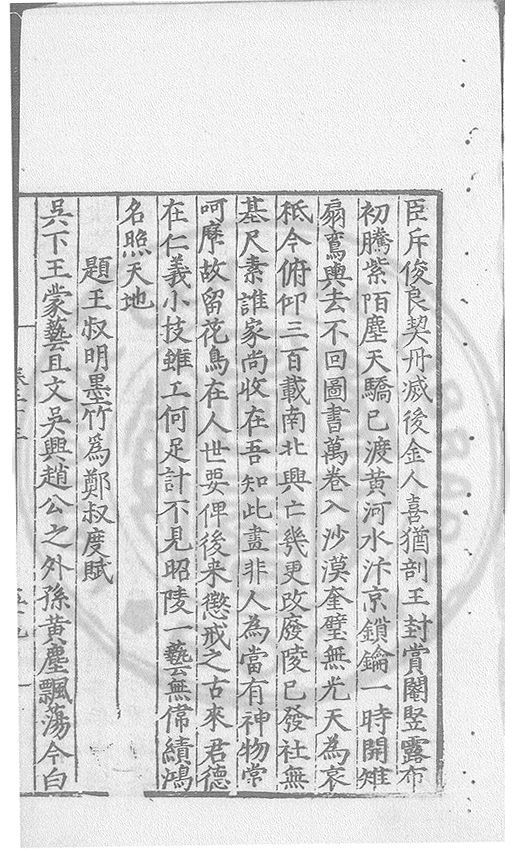 臣斥俊良契丹滅後金人喜猶剖王封賞閹竖露布
初騰紫陌塵天驕已渡黃河水汴京鎖鑰一時開雉
扇鸞輿去不回圖書萬卷入沙漠奎璧無光天為哀
秪今俯仰三百載南北興亡幾更改廢陵已發社無
基尺素誰家尚收在吾知此畫非人為當有神物常
呵摩故留花鳥在人世要俾後来懲戒之古來君德
在仁義小技雖工何足計不見昭陵一藝無偹績鴻
名照天地
題王叔明墨竹爲鄭叔度賦
吳下王蒙藝且文吳興趙公之外孫黃塵飄蕩今白